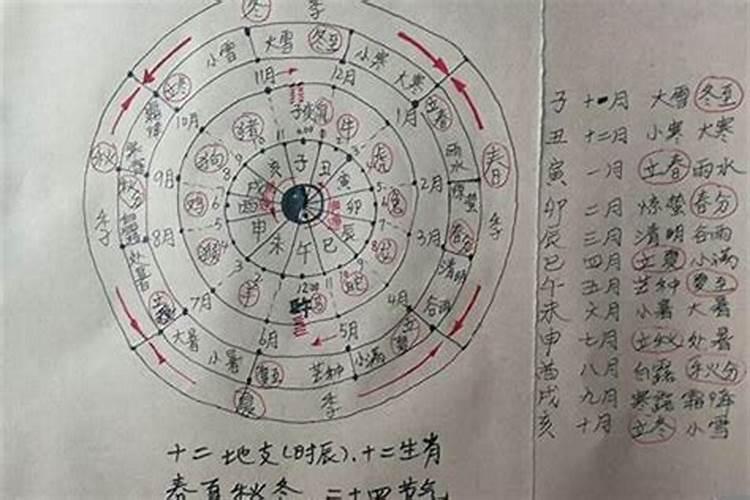 冬 季
小雪 大雪 冬至 小寒 大寒
立冬 立春
11月 12月
10月 1月
子 鼠 牛
猪 虎
狗 亥 子 丑 寅
秋 季 9月 戌 卯 2月 雨水 惊蛰 春 季
秋分 鸡 酉 辰 兔
8月 申 未 午 巳 3月 春分 清明
处暑 猴 龙
立秋 7月 羊 马 蛇 4月 谷雨
大暑 6月 5月 立夏
小暑 夏至 芒种 小满
夏 季
子 十一月 大雪 冬至
丑 十二月 小寒 大寒
寅 一月 立春 雨水
卯 二月 惊蛰 春分
辰 三月 清明 谷雨
巳 四月 立夏 小满
午 五月 芒种 夏至
未 六月 小暑 大暑
申 七月 立秋 处暑
酉 八月 白露 秋分
戌 九月 寒露 霜降
亥 十月 立冬 小雪
十二地支(时辰)、十二生肖
春夏秋冬 二十四节气